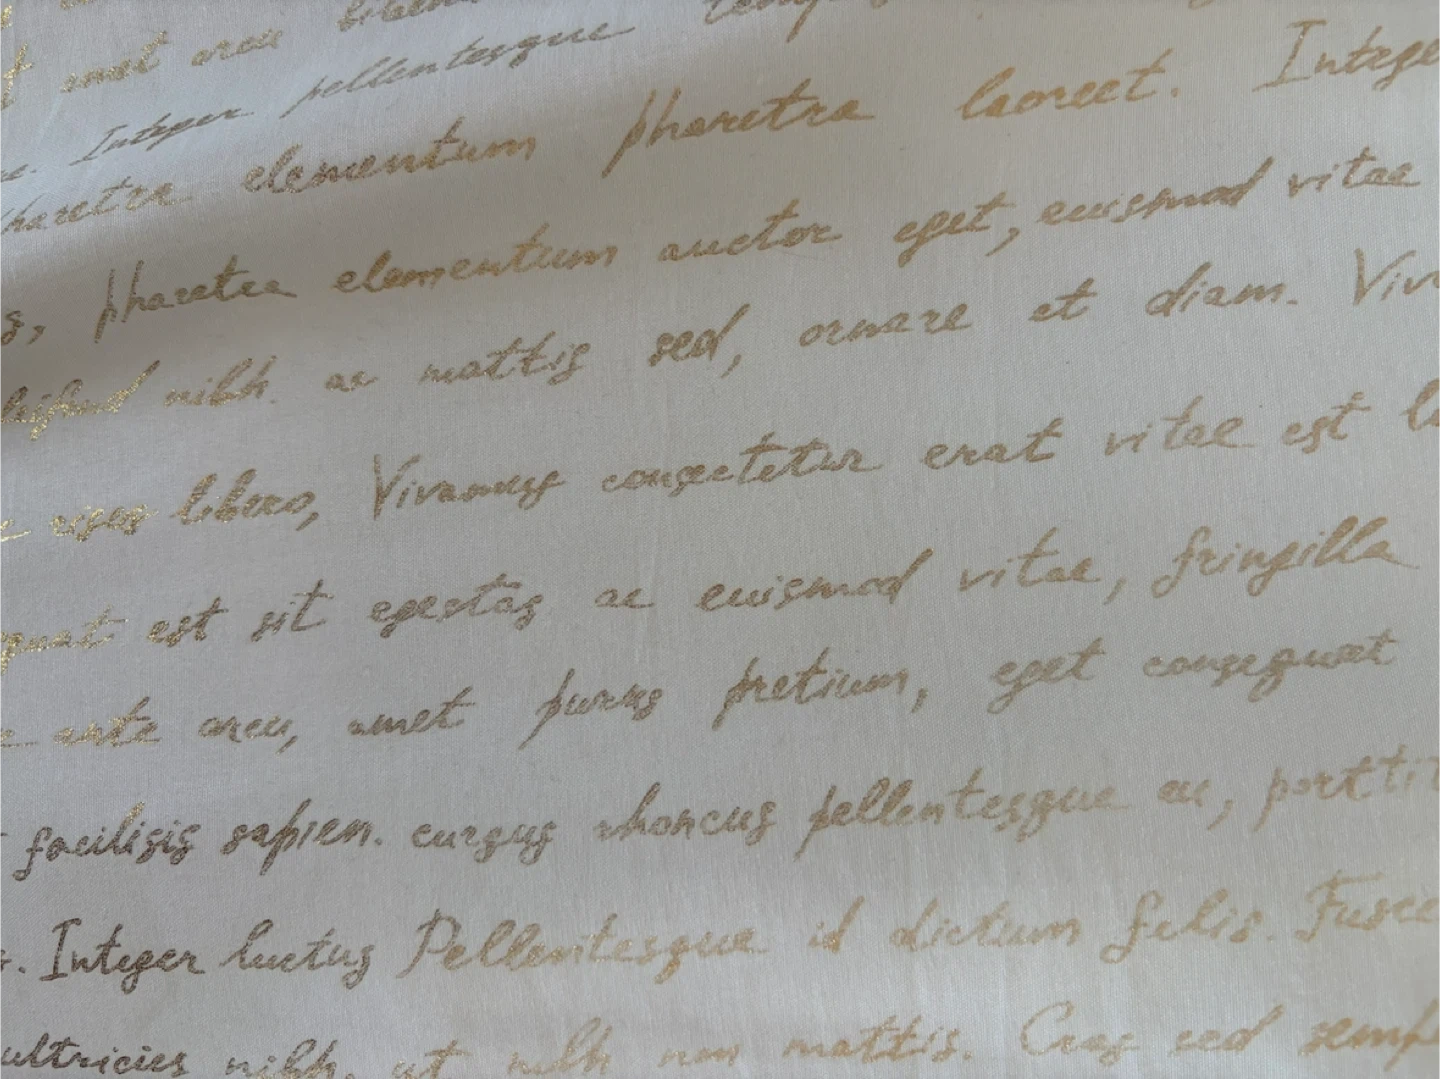 amet arcu
Integer pellentesque
pharetra elementum pharetra laoreet. Intege
s, pharetra elementum auctor eget, euismod vitae
nibh ac mattis sed, ornare et diam. Viv
risus libero, Vivamus consectetur erat vitae est
quat est sit egestas ac euismod vitae, fringilla
ante arcu, amet purus pretium, eget consequat
facilisis sapien. cursus rhoncus pellentesque eu, portti
s. Integer luctus Pellentesque id dictum felis. Fusce
ultricies nibh, ut nibh non mattis. Cras sed semp